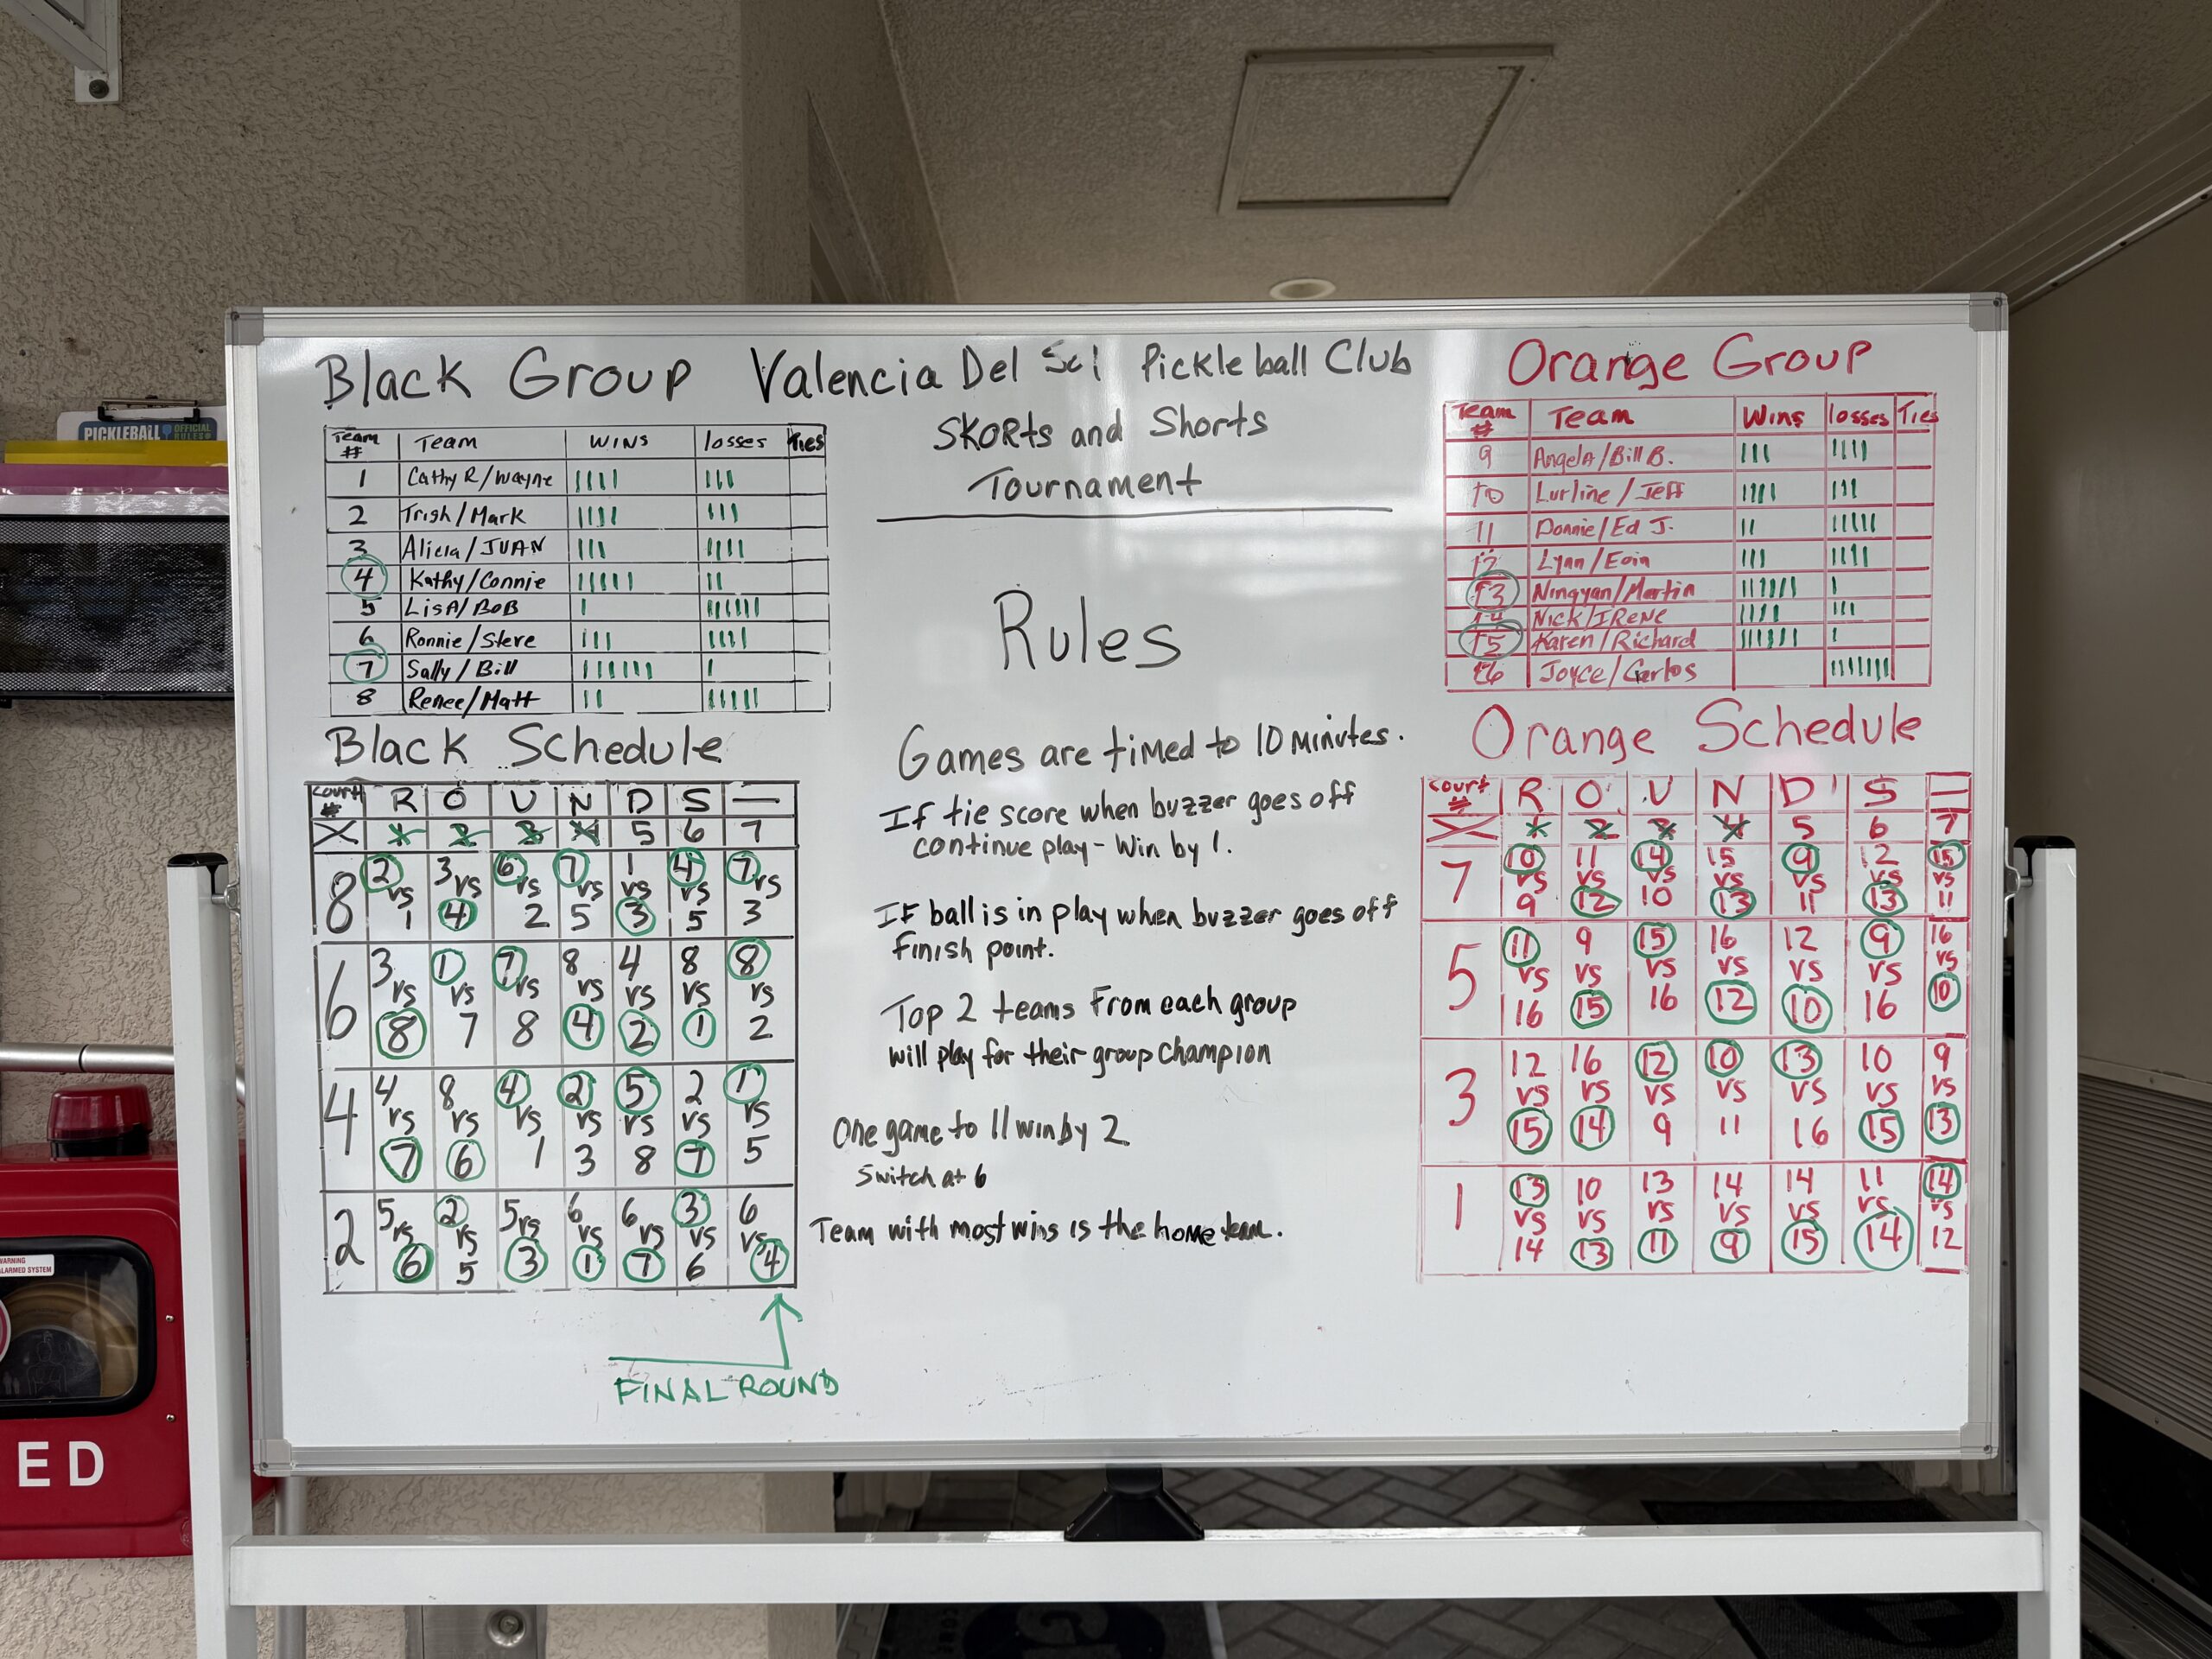 Black Group
Valencia Del Sol Pickleball Club
SKORTS and Shorts
Tournament
Team # Team WINS losses Ties
1 Cathy R/Wayne IIII III
2 Trish/Mark IIII III
3 Alicia/JUAN III IIII
4 Kathy/Connie IIIII II
5 LisA/BoB I IIIIII
6 Ronnie/Steve III IIII
7 Sally/Bill IIIIII I
8 Renee/Matt II IIIII
Black Schedule
Court # R O U N D S
1 2 3 4 5 6 7
8
2 3 6 7 1 4 7
vs vs vs vs vs vs vs
1 4 2 5 3 5 3
6
3 1 7 8 4 8 8
vs vs vs vs vs vs vs
8 7 8 4 2 1 2
4
4 8 4 2 5 2 1
vs vs vs vs vs vs vs
7 6 1 3 8 7 5
2
5 2 5 6 6 3 6
vs vs vs vs vs vs vs
6 5 3 1 7 6 4
FINAL ROUND
Rules
Games are timed to 10 minutes.
If tie score when buzzer goes off
continue play - Win by 1.
IF ball is in play when buzzer goes off
finish point.
Top 2 teams From each group
will play for their group champion
One game to 11 win by 2
Switch at 6
Team with most wins is the home team.
Orange Group
Team # Team Wins losses Ties
9 AngelA/Bill B. III IIII
10 Lurline/Jeff IIII III
11 Donnie/Ed J. II IIIII
12 Lynn/Eoin III IIII
13 Ningyan/Martin IIIIII I
14 Nick/IRene IIII III
15 Karen/Richard IIIIII I
16 Joyce/Carlos IIIIIII
Orange Schedule
Court # R O U N D S
1 2 3 4 5 6 7
7
10 11 14 15 9 12 15
vs vs vs vs vs vs vs
9 12 10 13 11 13 11
5
11 9 15 16 12 9 16
vs vs vs vs vs vs vs
16 15 16 12 10 16 10
3
12 16 12 10 13 10 9
vs vs vs vs vs vs vs
15 14 9 11 16 15 13
1
13 10 13 14 14 11 14
vs vs vs vs vs vs vs
14 13 11 9 15 14 12
PICKLEBALL OFFICIAL
RULES
WARNING
ALARMED SYSTEM
ED